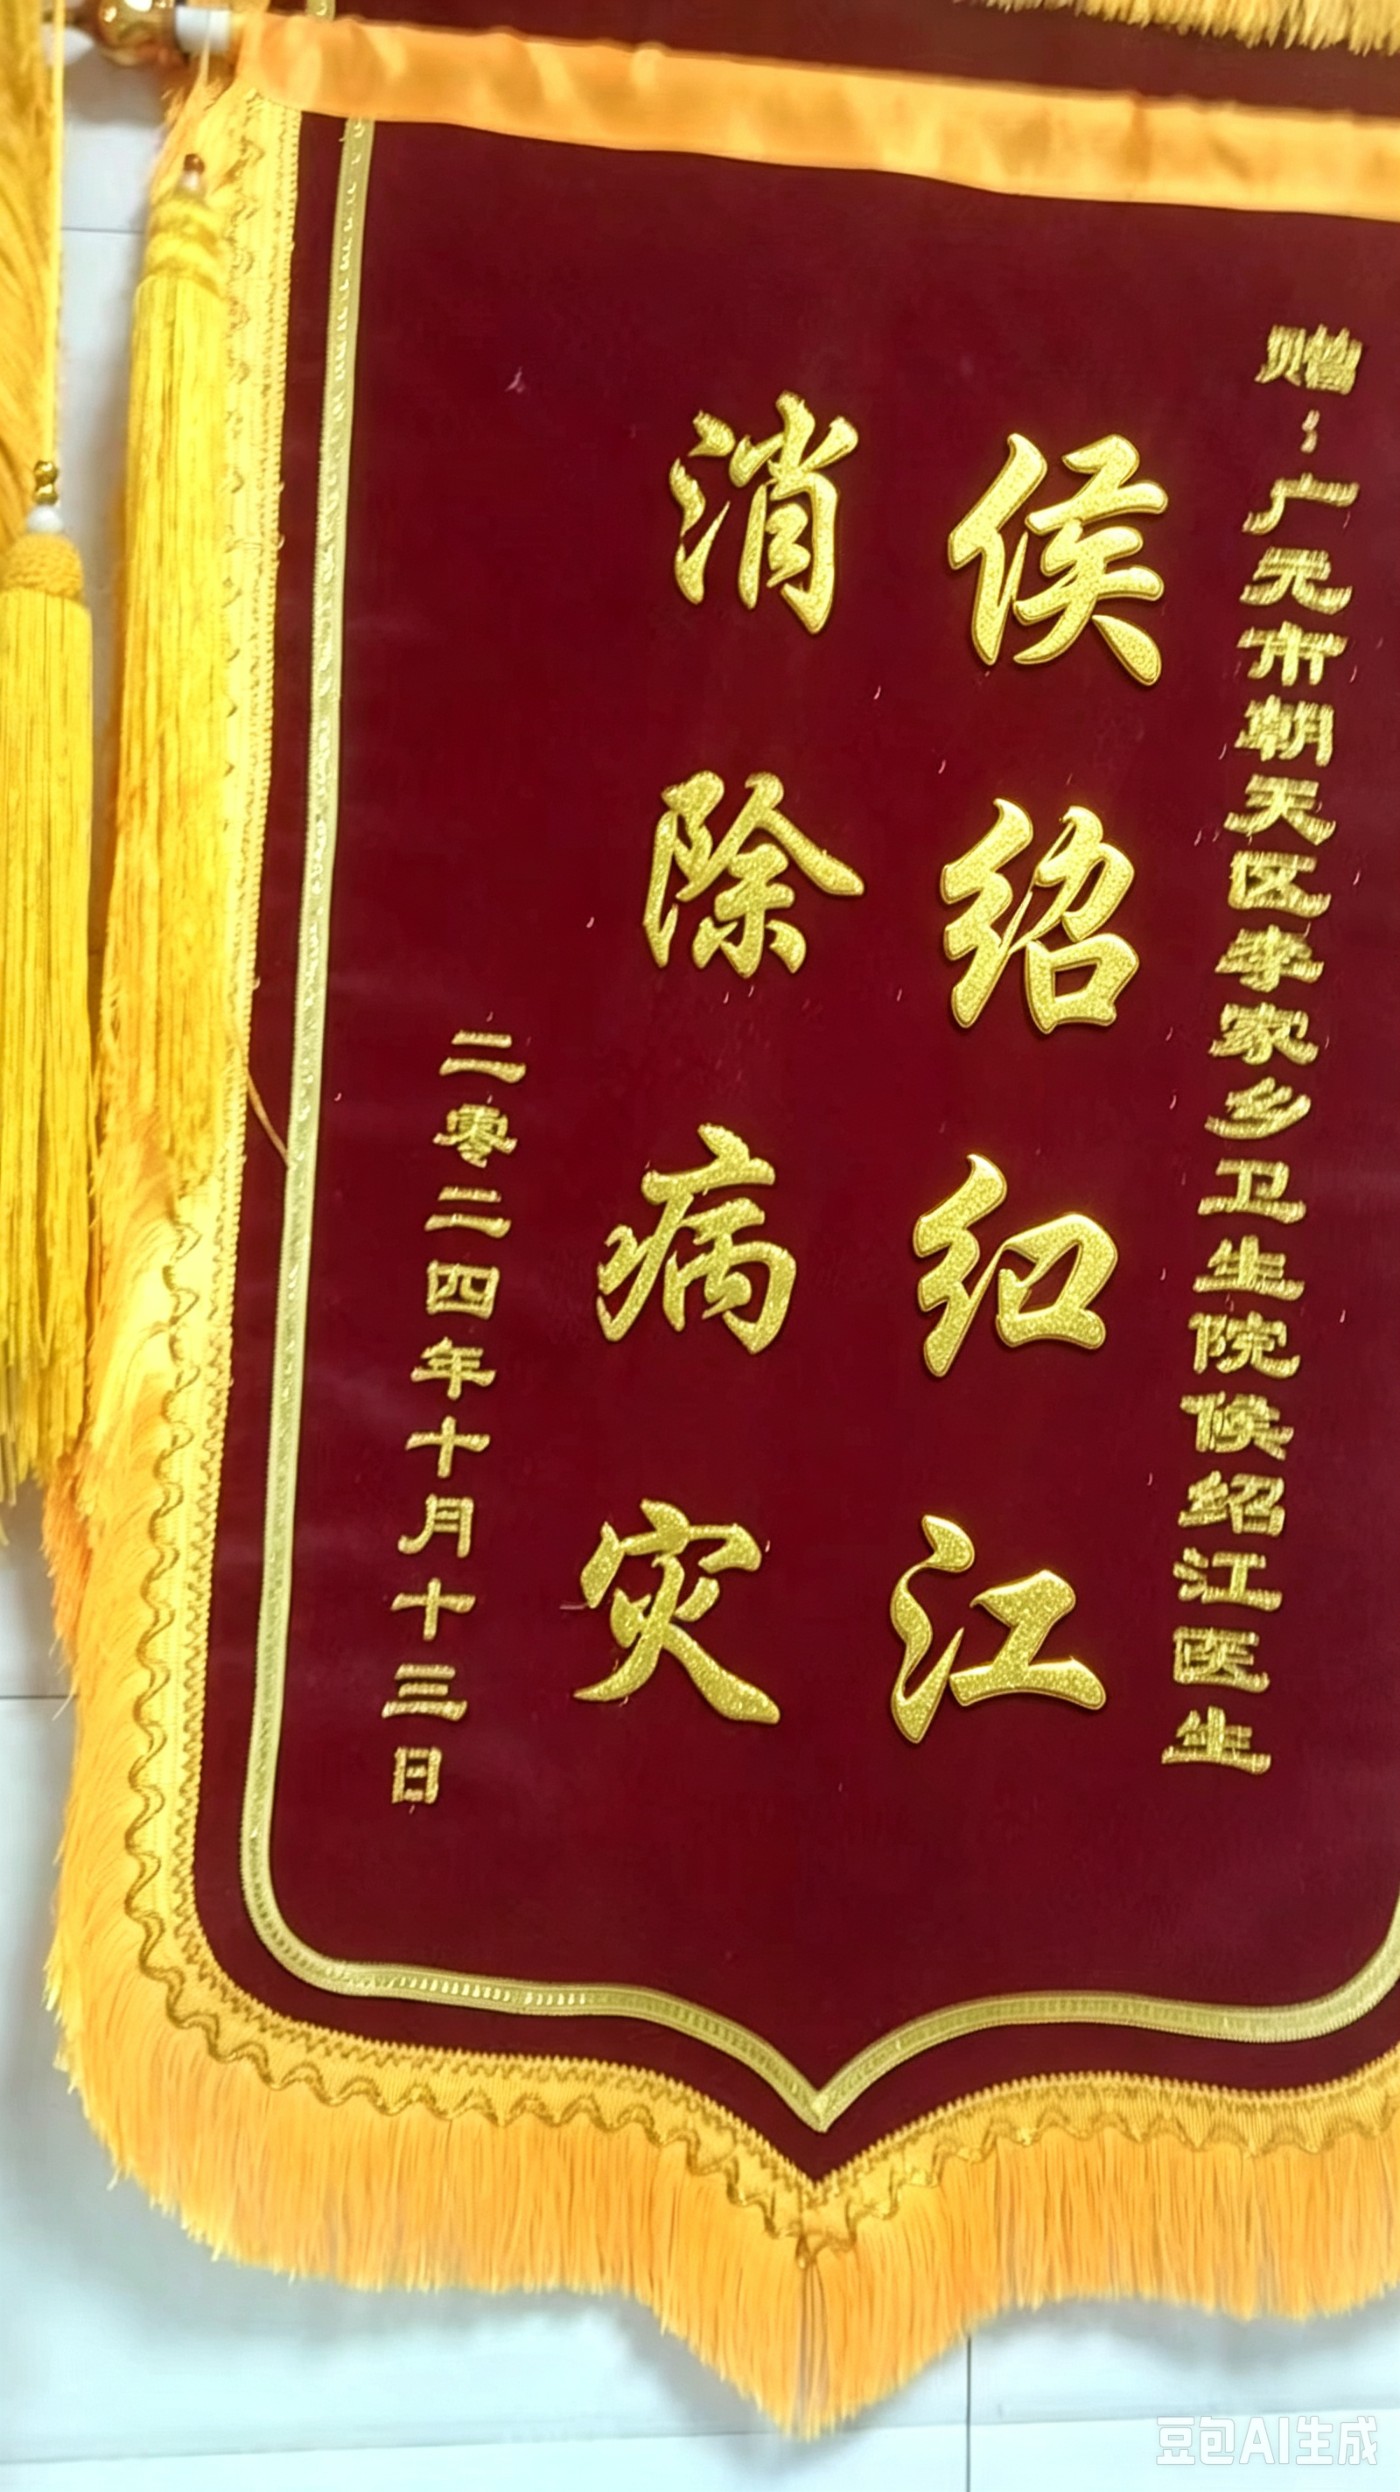 赠:广元市朝天区李家乡卫生院侯绍江医生
侯绍江
消除病灾
二零二四年十月十三日
豆包AI生成